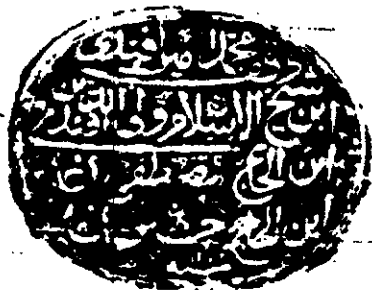 محمد امين افندى
ابن شيخ الاسلام ولى الدين افندى
ابن الحاج مصطفى اغا
ابن الحاج حسين اغا